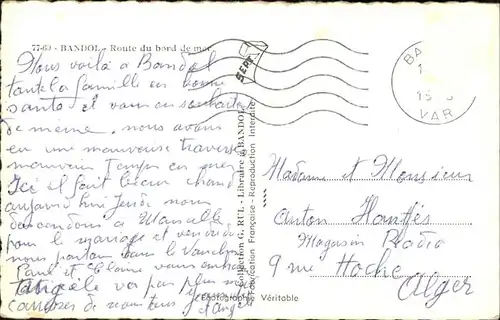 77-69 - BANDOL - Route du bord de mer
Nous voilà à Bandol
toute la famille en bonne
santé et vous en souhaitons
de même. nous avons
eu une mauvaise traversée
mauvais temps en mer
Ici il fait chaud
aujourd'hui jeudi nous
descendons à Marseille
pour le mariage et vendredi
nous partons dans le Vaucluse
Paul et vous
Angèle
de nous tous Angèle
Collection G. RUL - Librairie à BANDOL
Fabrication Française - Reproduction Interdite
Photographie Véritable
SEPT.
BA
VAR
Madame et Monsieur
Anton
Magasin Radio
9 rue Hoche
Alger